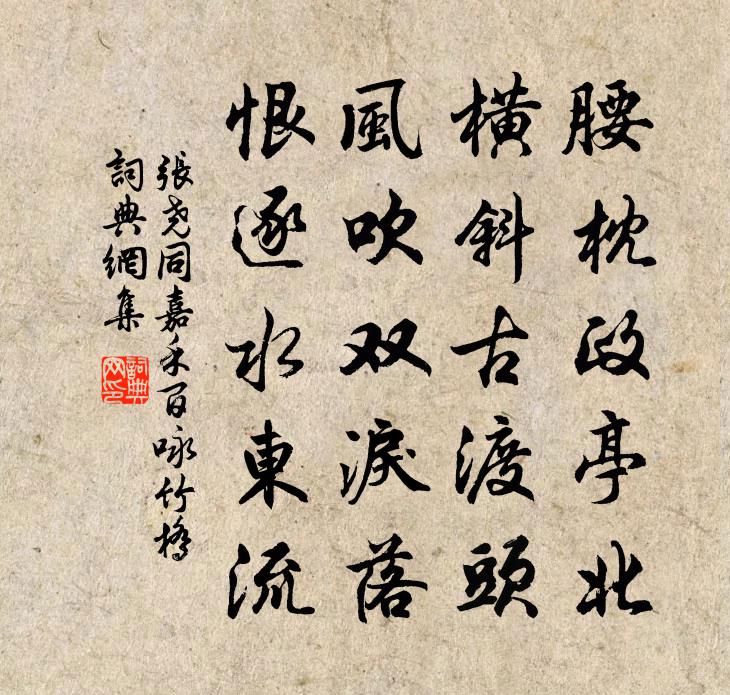 腰枕政亭北
橫斜古渡頭
風吹双淚落
恨逐水東流
張尧同嘉禾百咏竹橋
詞典網集
詞典网印